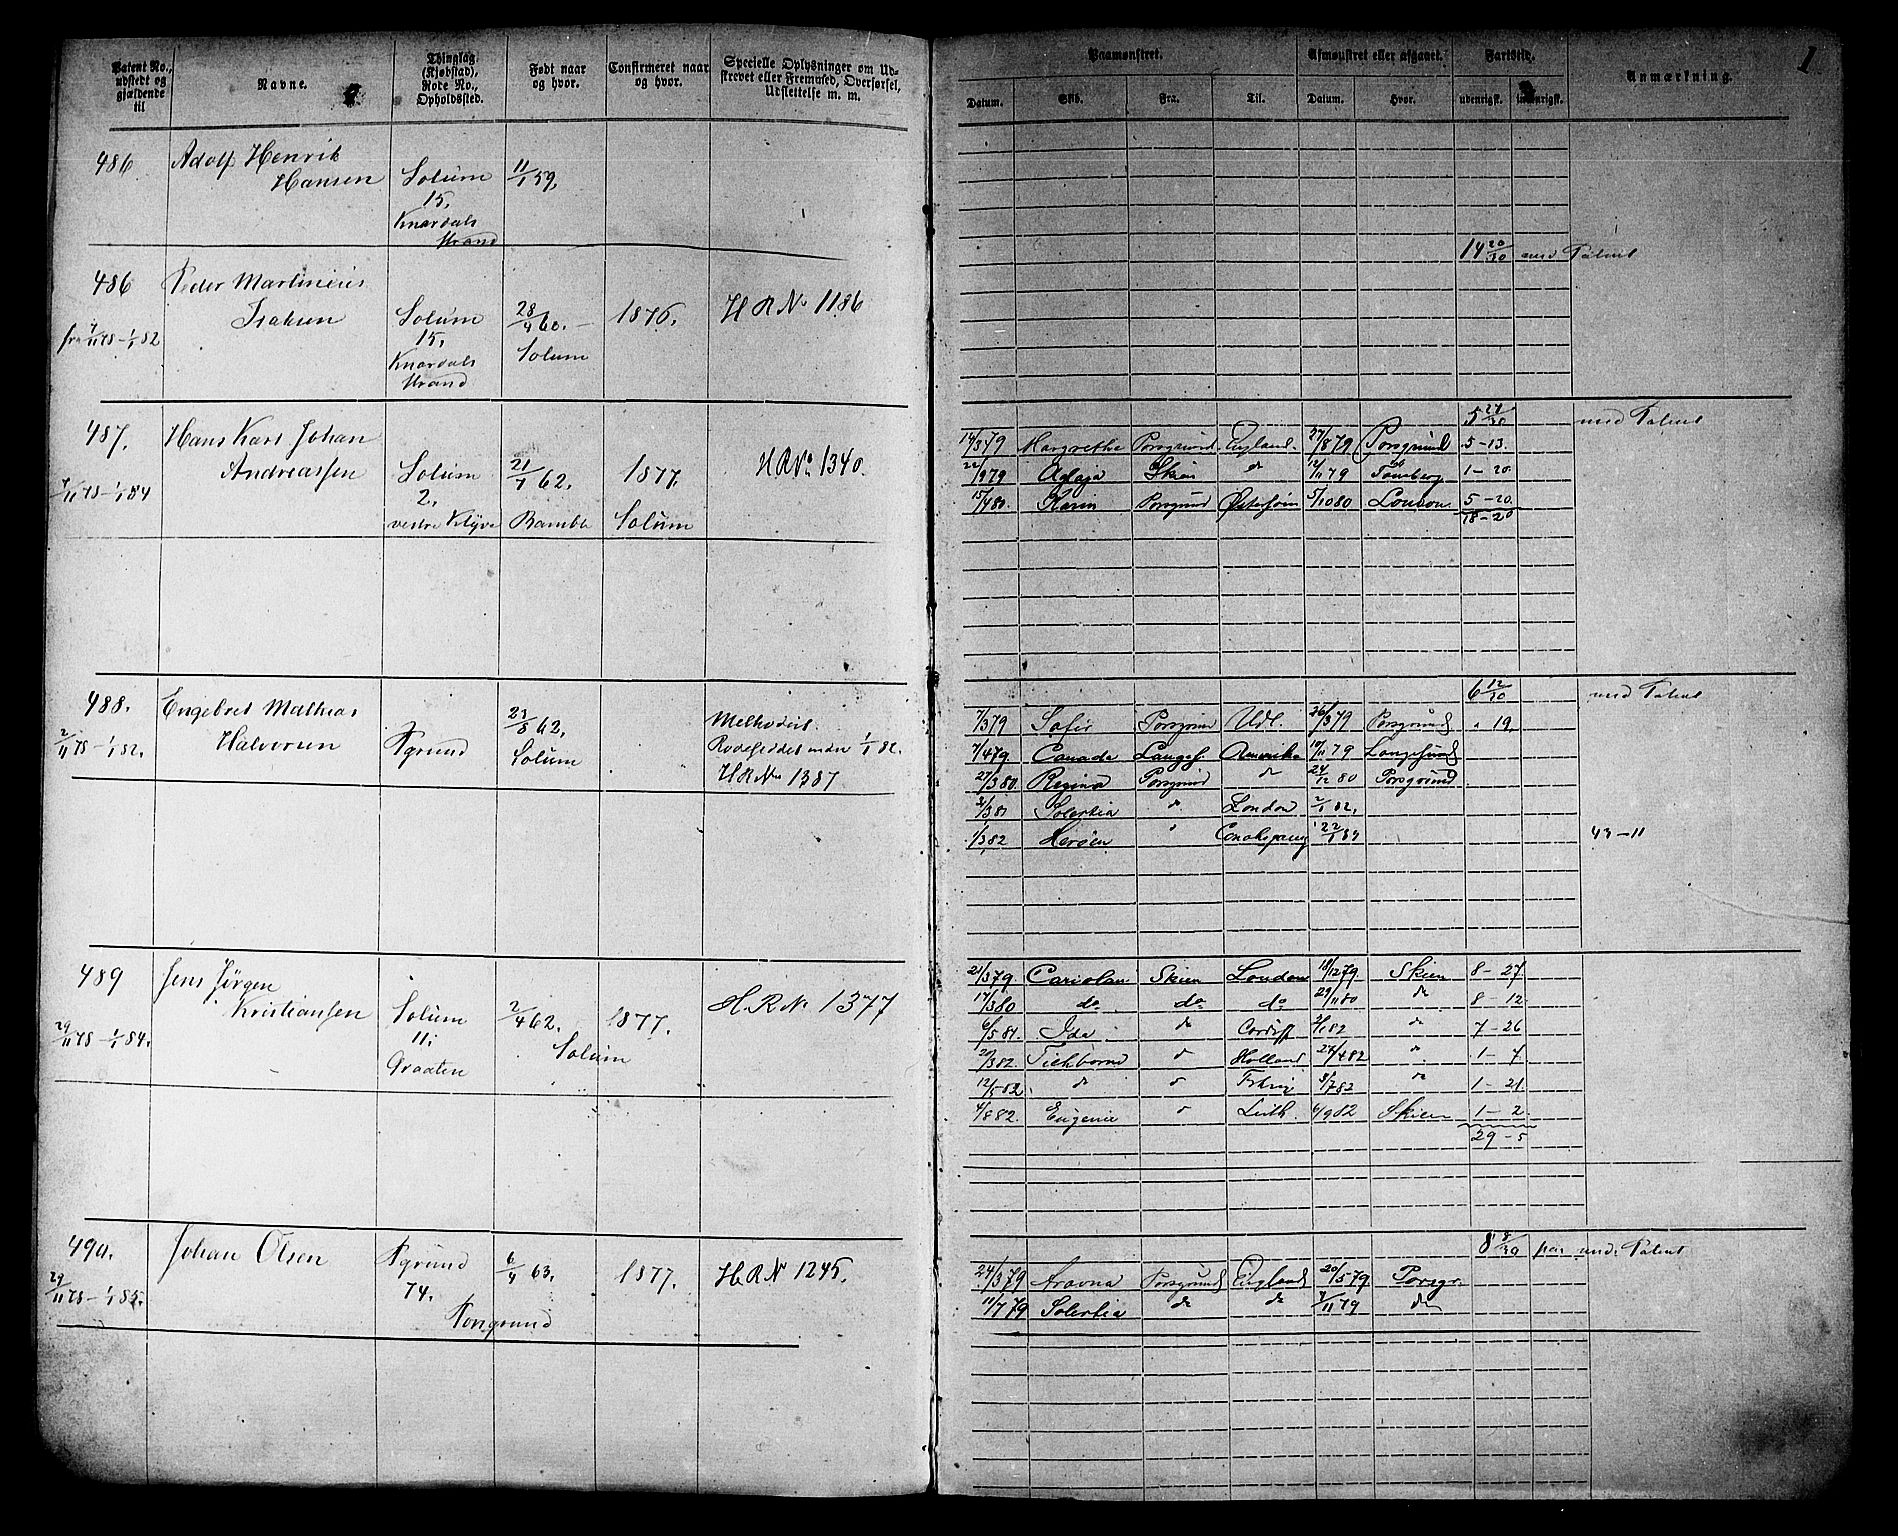 Patent No., udstedt og gjældende til
Navne.
Thinglag, (Kjøbstad), Rode No., Opholdssted.
Født naar og hvor.
Confirmeret naar og hvor.
Specielle Oplysninger om Udskrevet eller Fremmsed, Overførsel, Udslettelse m. m.
Paamønstret.
Afmønstret eller afgaaet.
Fartstid.
Anmærkning.
1
Datum.
Skib.
Fra.
Til.
Datum.
Hvor.
udenrigsk.
indenrigsk.
486 Adolf Henrik
Hansen Solum 11/1 59,
15,
Knardals
Strand
14 20/30 med Patent
486 Peder Martinius
Isaksen Solum 28/4 60. 1876. H R No 1186
fra 7/11 78 - 1/1 82 15,
Knardals Solum
Strand
5 27/30 med Patent
487. Hans Karl Johan
Andreassen Solum 21/7 62, 1877. H R No 1340.
7/11 78 - 1/1 84 2,
vestre Klyve Bamble Solum
14/3 79 Margrethe Porsgrund England. 27/8 79 Porsgrund 5-13.
22/9 79 Aglaja Skien do 12/11 79 Tønsberg 1-20.
15/4 80. Karin Porsgrund Østersøen 5/10 80 London. 5-20.
18-20
6 12/30 med Patent
488. Engebret Mathias
Halvorsen Pgrund 23/5 62, Methodist.
2/11 78 - 1/1 82. Solum Rodeslettet under 1/1 82.
H R No 1387
7/3 79 Safir Porsgrund Udl. 26/3 79 Porsgrund " 19,
7/4 79 Canada Langes. Amerika 10/11 79 Langesund
27/3 80. Regina Porsgrund do 24/12 80 Porsgrund
2/3 81 Solertia do London 2/1 82,
1/3 82 Herøen " 22/1 84 43-11
489 Jens Jørgen
Kristiansen Solum 2/4 62. 1877. H. R. No 1377
29/11 78 - 1/1 84. 11; Solum
Graaten
21/3 79. Cariolan Skien London 18/12 79. Skien 8-27
17/3 80 do do do 29/11 80 do 8-12.
6/5 81. Ida do Cardiff 2/1 82 do 7-26
20/3 82. Tichborne do Holland 27/4 82 " 1-7.
12/5 82. do do 8/7 82 do 1-21.
4/8 82. Eugenie do Leith. 6/9 82 Skien 1-2.
29-5
490. Johan Olsen Pgrund 6/4 63. 1877. H R No 1245.
29/11 78 - 1/1 85. 74.
Porsgrund
8 8/30 med Patent
24/3 79 Aravna Porsgrund England 20/5 79. Porsgr.
11/7 79 Solertia do do 7/11 79 do